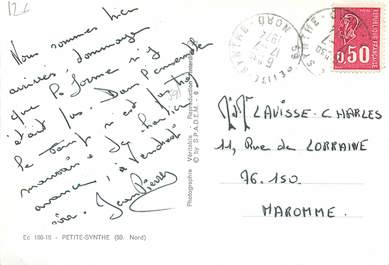 12€
Nous sommes bien
arrivés dommage
que la forme n'y
était pas. Dans l'ensemble
le temps n'est pas trop
mauvais. Je
avance, à Vendredi
soir. Jean Pierre
Photographie Véritable - Reproduction interdite
© by S.P.A.D.E.M.
Ec 180-15 - PETITE-SYNTHE (59. Nord)
PETITE-SYNTHE-NORD
59
1974
REPUBLIQUE FRANÇAISE
0,50
POSTES
LAVISSE-CHARLES
11, Rue de LORRAINE
76.150
MAROMME.